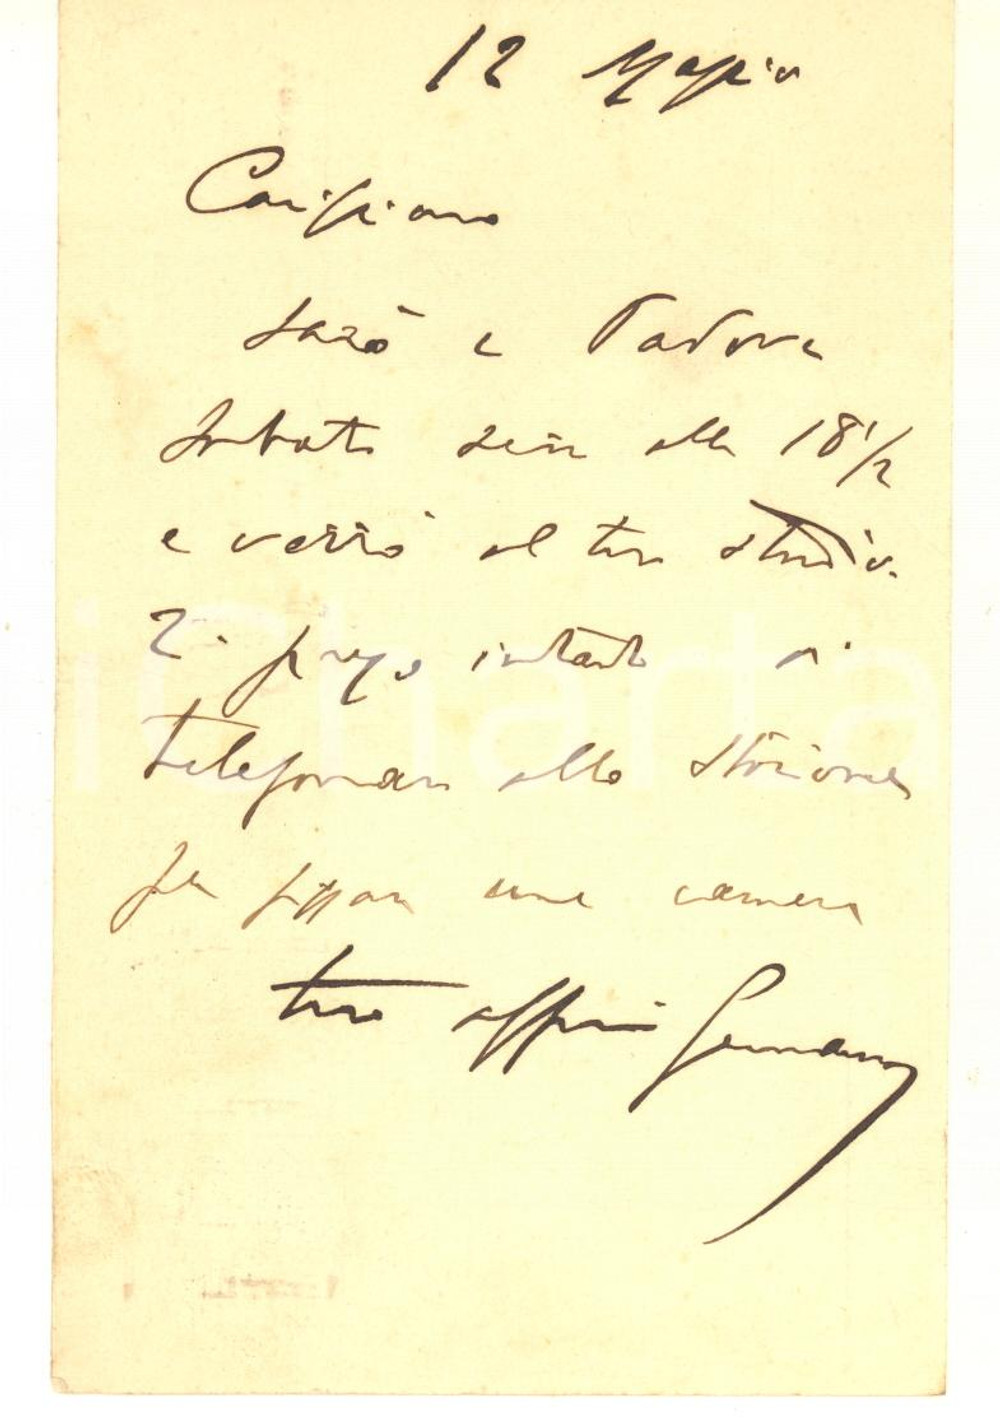 12 Maggio
Carissimo
sarò a Padova
Sabato sera alle 18 1/2
e verrò al tuo studio.
Ti prego intanto di
telefonare allo Storione
per fissare una camera
tuo affmo Gennaro
iCharta